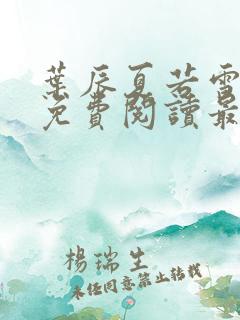 葉辰夏若雪
免費閱讀最
楊瑞生
未經同意禁止轉載